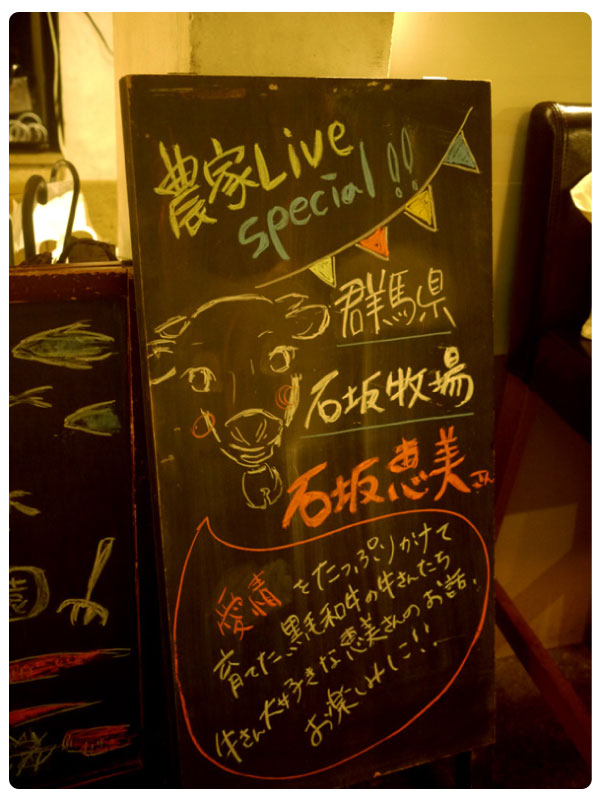 農家Live
special!!
群馬県
石坂牧場
石坂恵美さん
愛情をたっぷりかけて
育てた、黒毛和牛の牛さんたち
牛さん大好きな恵美さんのお話、
お楽しみに!!
園